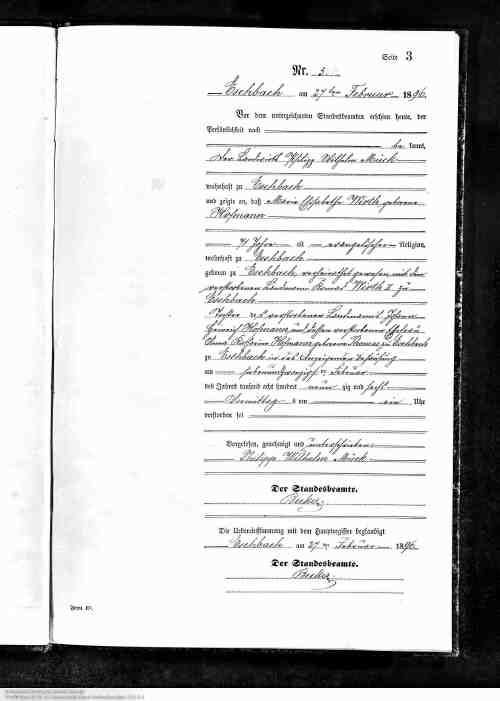 Seite 3
Nr. 5
Eschbach am 27ten Februar 1896.
Vor dem unterzeichneten Standesbeamten erschien heute, der
Persönlichkeit nach
be kannt,
der Landwirth Philipp Wilhelm Mück
wohnhaft zu Eschbach
und zeigte an, daß Maria Elisabetha Wirth geborene
Hofmann
71 Jahre alt evangelischer Religion,
wohnhaft zu Eschbach
geboren zu Eschbach, verheirathet gewesen mit dem
verstorbenen Landmann Wirth II zu
Eschbach
Tochter des verstorbenen Landmanns Johann
Heinrich Hofmann und dessen verstorbenen Ehefrau
Anna Hofmann geborene zu Eschbach
zu Eschbach in des Anzeigenden Behausung
am siebenundzwanzigsten Februar
des Jahres tausend acht hundert neun zig und sechs
Vormittag s um ein Uhr
verstorben sei
Vorgelesen, genehmigt und unterschrieben
Philipp Wilhelm Mück
Der Standesbeamte.
Becker
Die Uebereinstimmung mit dem Hauptregister beglaubigt
Eschbach am 27ten Februar 1896.
Der Standesbeamte.
Becker
Form. C.